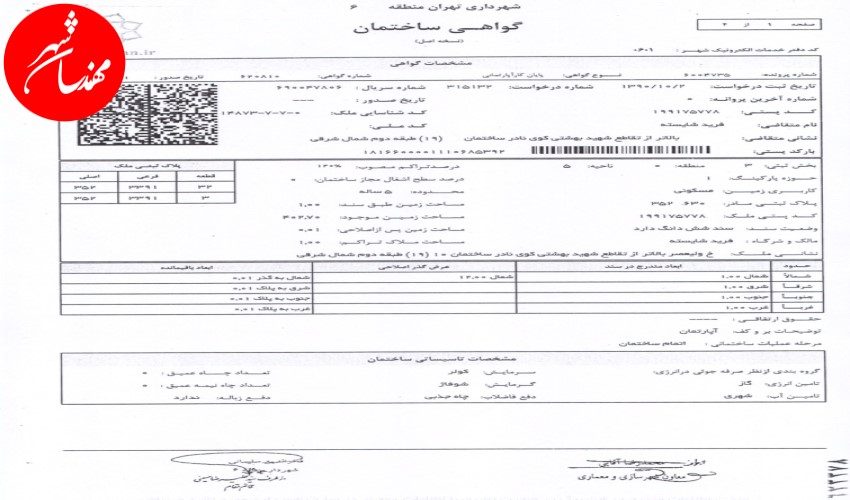 شهرداری تهران منطقه ۶
گواهـی ساختمان
(نسخه اصل)
صفحه ۱ از ۲
مهندسان شهر
کد دفتر خدمات الکترونیک شهر: ۰۶۰۱
مشخصات گواهی
شماره پرونده: ۶۰۰۴۷۳۵ نوع گواهی: پایان کارآپارتمانی شماره گواهی: ۶۲۰۸۱۰ تاریخ صدور:
تاریخ ثبت درخواست: ۱۳۹۰/۱۰/۲ شماره درخواست: ۳۱۵۱۳۲ شماره سریال: ۶۹۰۰۴۷۸۰۶
شماره آخرین پروانه: ۰ تاریخ صدور: ---
کد پستی: ۱۹۹۱۷۵۷۷۸ کد شناسایی ملک: ۱۴۸۷۳-۷-۷-۰
نام متقاضی: فرید شایسته کد ملی:
نشانی متقاضی: بالاتر از تقاطع شهید بهشتی کوی نادر ساختمان (۱۹) طبقه دوم شمال شرقی
بارکد پستی: ۱۸۱۶۶۰۰۰۰۱۱۱۰۶۸۵۳۹۲
بخش ثبتی: ۳ منطقه: ۰ ناحیه: ۵ درصدتراکم مصوب: ۱۲۰%
حوزه پارکینگ: ۱ درصد سطح اشغال مجاز ساختمان: ۰
کاربری زمین: مسکونی محدوده: ۵ ساله
پلاک ثبتی مادر: ۶۳۰، ۳۵۲ مساحت زمین طبق سند: ۱,۰۰
کد پستی ملک: ۱۹۹۱۷۵۷۷۸ مساحت زمین موجود: ۴۰۲,۷۰
وضعیت سند: سند شش دانگ دارد مساحت زمین پس ازاصلاحی: ۰,۰۱
مالک و شرکاء: فرید شایسته مساحت ملاک تراکم: ۱,۰۰
نشانی ملک: خ ولیعصر بالاتر از تقاطع شهید بهشتی کوی نادر ساختمان ۱۰ (۱۹) طبقه دوم شمال شرقی
پلاک ثبتی ملک
قطعه فرعی اصلی
۳۲ ۳۳۹۱ ۳۵۲
۳ ۳۳۹۱ ۳۵۲
حدود ابعاد مندرج در سند عرض گذر اصلاحی ابعاد باقیمانده
شمالاً شمال ۱,۰۰ شمال ۱۲,۰۰ شمال به گذر ۰,۰۱
شرقاً شرق ۱,۰۰ شرق به پلاک ۰,۰۱
جنوباً جنوب ۱,۰۰ جنوب به پلاک ۰,۰۱
غرباً غرب ۱,۰۰ غرب به پلاک ۰,۰۱
حقوق ارتفاقی: ----
توضیحات بر و کف: آپارتمان
مرحله عملیات ساختمانی: اتمام ساختمان
مشخصات تاسیساتی ساختمان
گروه بندی ازنظر صرفه جوئی درانرژی: سرمایش: کولر تعداد چاه عمیق: ۰
تامین انرژی: گاز گرمایش: شوفاژ تعداد چاه نیمه عمیق: ۰
تامین آب: شهری دفع فاضلاب: چاه جذبی دفع زباله: ندارد
معاون شهرسازی و معماری